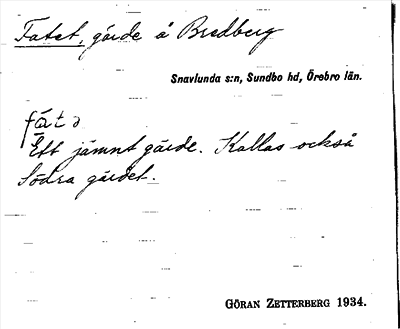 Fatet, gärde å Bredberg
Snavlunda s:n, Sundbo hd, Örebro län.
Ett jämnt gärde. Kallas också
Södra gärdet.
GÖRAN ZETTERBERG 1934.